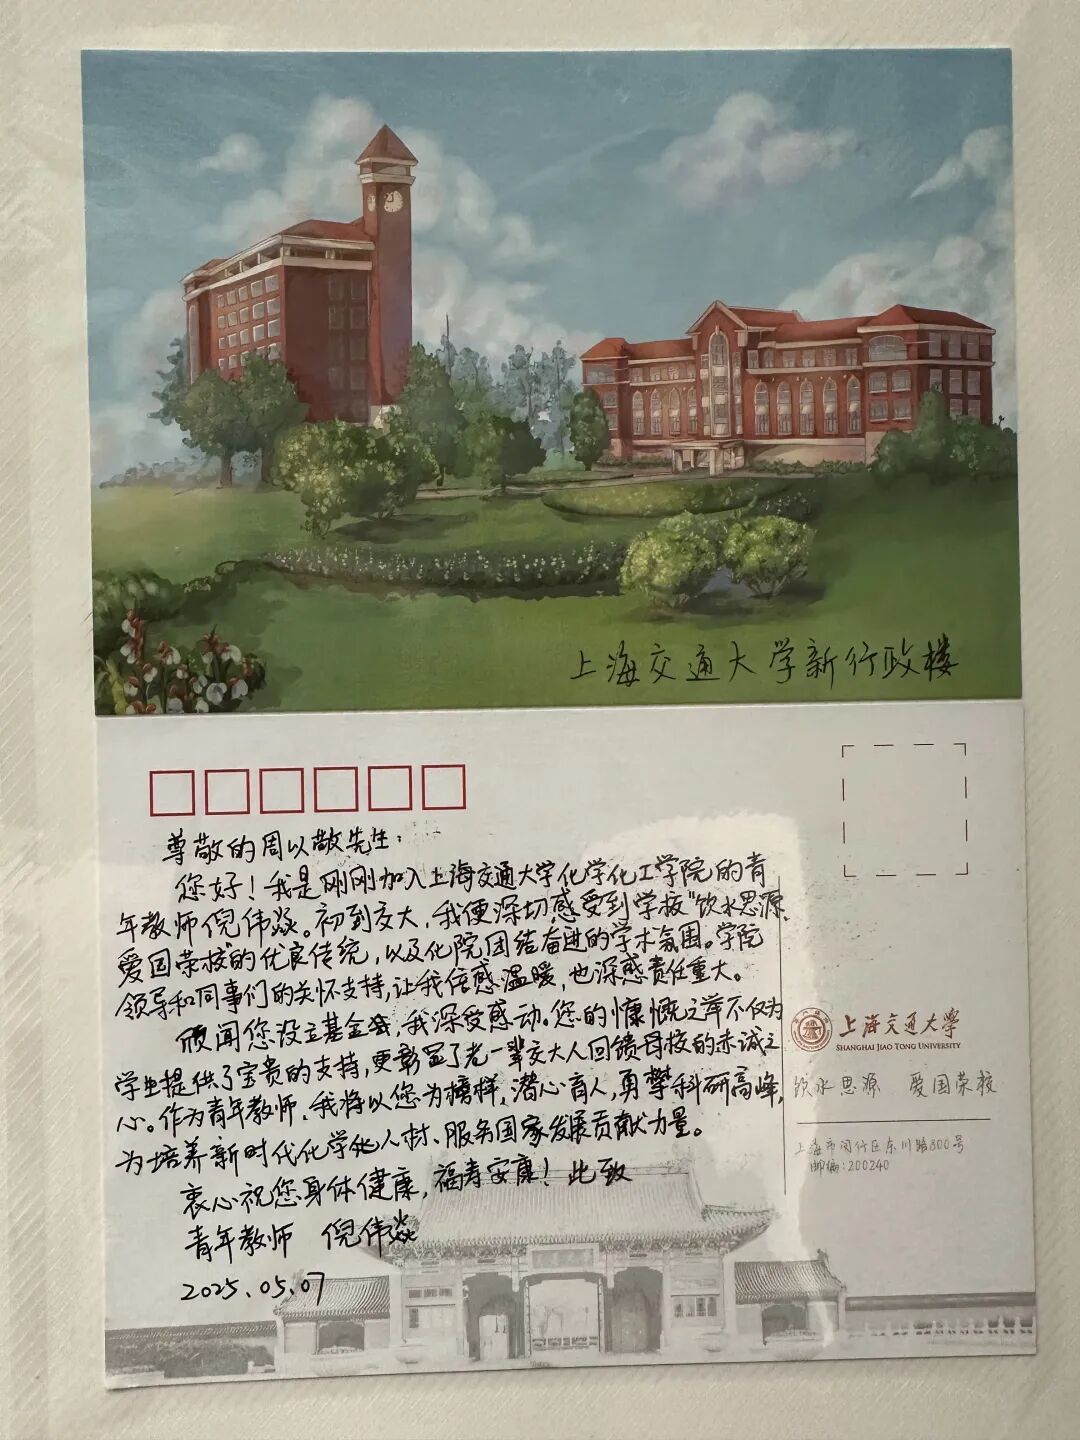 上海交通大学新行政楼
尊敬的周以敬先生：
您好！我是刚刚加入上海交通大学化学化工学院的青
年教师倪伟焱。初到交大，我便深切感受到学校“饮水思源、
爱国荣校”的优良传统，以及化院团结奋进的学术氛围。学院
领导和同事们的关怀支持，让我倍感温暖，也深感责任重大。
顷闻您设立基金会，我深受感动。您的慷慨之举不仅为
学生提供了宝贵的支持，更彰显了老一辈交大人回馈母校的赤诚之
心。作为青年教师，我将以您为榜样，潜心育人，勇攀科研高峰，
为培养新时代化学化人材、服务国家发展贡献力量。
衷心祝您身体健康，福寿安康！此致
青年教师 倪伟焱
2025.05.07
上海交通大学
SHANGHAI JIAO TONG UNIVERSITY
饮水思源 爱国荣校
上海市闵行区东川路800号
邮编：200240